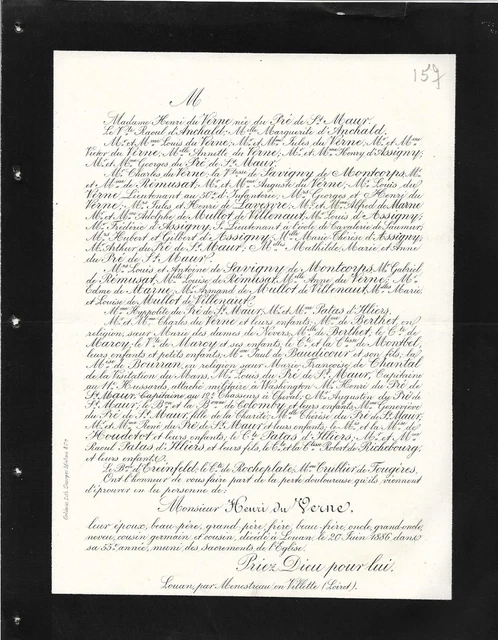 157
M
Madame Henri du Verne née du Pré de St Maur.
Le Vte Raoul d'Anchald, Mlle Marguerite d'Anchald,
Mr et Mme Louis du Verne, Mr et Mme Jules du Verne, Mr et Mme
Victor du Verne, Mlle Annette du Verne, Mr et Mme Henry d'Assigny,
Mr et Mme Georges du Pré de St Maur.
Mr Charles du Verne, la Vtesse de Savigny de Montcorps, Mr
et Mme de Rémusat, Mr et Mme Auguste du Verne, Mr Louis du
Verne, Lieutenant au d'Infanterie, Mrs Georges et Henri du
Verne, Mrs Jules et Henri de Mr et Mme Alfred de Marne
Mr et Mme Adolphe de Mullot de Villenaut, Mr Louis d'Assigny,
Mr Frédéric d'Assigny, S. Lieutenant à l'école de Cavalerie de Saumur,
Mrs Hubert et Gilbert d'Assigny, Mlle Marie Thérèse d'Assigny,
Mr Arthur du Pré de St Maur, Mlles Mathilde, Marie et Anne
du Pré de St Maur.
Mrs Louis et Antoine de Savigny de Montcorps, Mr Gabriel
de Rémusat, Mlle Louise de Rémusat, Mlle Anne du Verne, Mr
Edme de Marne, Mr Armand de Mullot de Villenaut, Mlles Marie,
et Louise de Mullot de Villenaut.
Mme Hippolyte du Pré de St Maur, Mr et Mme Patas d'Illiers.
Mr et Mme Charles du Verne et leurs enfants, Mme de Berthet en
religion, sœur Marie des dames de Nevers, Mlle de Berthet, le Cte de
Maroy, le Vte de Maroy et ses enfants, le Cte et la Ctesse de Montbel,
leurs enfants et petits enfants, Mme Paul de Baudicour et son fils, la
Mise de Bourran, en religion sœur Marie Françoise de Chantal
de la Visitation du Mans, Mr Louis du Pré de St Maur, Capitaine
au 11e Hussards, attaché militaire à Washington, Mr Henri du Pré de
St Maur, Capitaine au Chasseurs à Cheval, Mr Augustin du Pré de
St Maur, le Bon et la Bonne de Colomby et leurs enfants, Mme Geneviève
du Pré de St Maur, fille de la Charité, Mlle Thérèse du Pré de St Maur,
Mr et Mme René du Pré de St Maur et leurs enfants, le Mis et la Mise de
Houdetot et leurs enfants, le Cte Patas d'Illiers, Mr et Mme
Raoul Patas d'Illiers, et leurs fils, le Cte et la Ctesse Robert de Richebourg,
et leurs enfants.
Le Bon de Rocheplate, Mme Crullier de Fougères.
Ont l'honneur de vous faire part de la perte douloureuse qu'ils viennent
d'éprouver en la personne de:
Monsieur Henri du Verne,
leur époux, beau-père, grand-père, frère, beau-frère, oncle, grand-oncle,
neveu, cousin germain et cousin, décédé à Louan, le 20 Juin 1886, dans
sa 55e année, muni des Sacrements de l'Église.
Priez Dieu pour lui.
Louan, par Menestreau en Villette (Loiret).